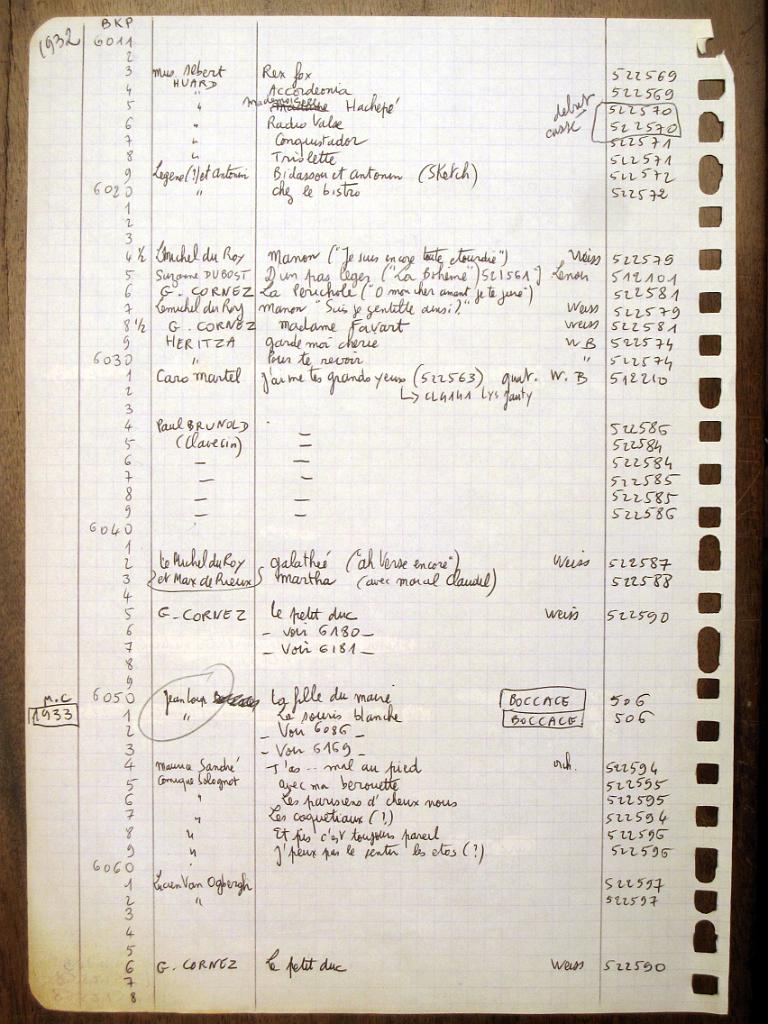 BKP
1932 6011
2
3 Mus Albert Rex fox 522569
4 HUARD Accordeonia 522569
5 " Mademoiselle Hachepé debut 522570
6 " Radio Valse cassé 522570
7 " Conquistador 522571
8 " Triolette 522571
9 Legene(?) et Antonin Bidasson et antonin (Sketch) 522572
6020 " chez le bistro 522572
1
2
3
4 ½ Lemichel du Roy Manon ("Je suis encore toute etourdie") Weiss 522579
5 Suzanne DUBOST D'un pas leger ("La Bohême") 521561 Lenoir 512101
6 G. CORNEZ La Perichole ("O mon cher amant je te jure") 522581
7 Lemichel du Roy Manon "Suis je gentille ainsi?" Weiss 522579
8 ½ G. CORNEZ Madame Favart Weiss 522581
9 HERITZA garde moi cherie W.B 522574
6030 " Pour te revoir " 522574
1 Caro Martel J'aime tes grands yeux (522563) guit. W.B 512210
2 ↳ CL4141 Lys gauty
3
4 Paul BRUNOLD " 522586
5 (Clavecin) — 522584
6 — — 522584
7 — — 522585
8 — — 522585
9 — — 522586
6040
1
2 Le Michel du Roy galathée ("ah Verse encore") Weiss 522587
3 et Max de Rieux martha (avec marcal Claudel) 522588
4
5 G-CORNEZ le petit duc Weiss 522590
6 — voir 6180 —
7 — Voir 6181 —
8
9
M.C 6050 Jean Loup La fille du maire BOCCACE 506
1933 1 " La souris blanche BOCCACE 506
2 — Voir 6086 —
3 — Voir 6169 —
4 Maurice Sandré T'as... mal au pied orch. 522594
5 Comique Solognot avec ma berouette 522595
6 " Les parisiens d'cheux nous 522595
7 " Les coquetiaux (?) 522594
8 " Et pis c'est toujours pareil 522596
9 " J'peux pas le sentir les etos (?) 522596
6060
1 Lucien Van Ogbergh 522597
2 " 522597
3
4
5
6 G. CORNEZ le petit duc Weiss 522590
7
8